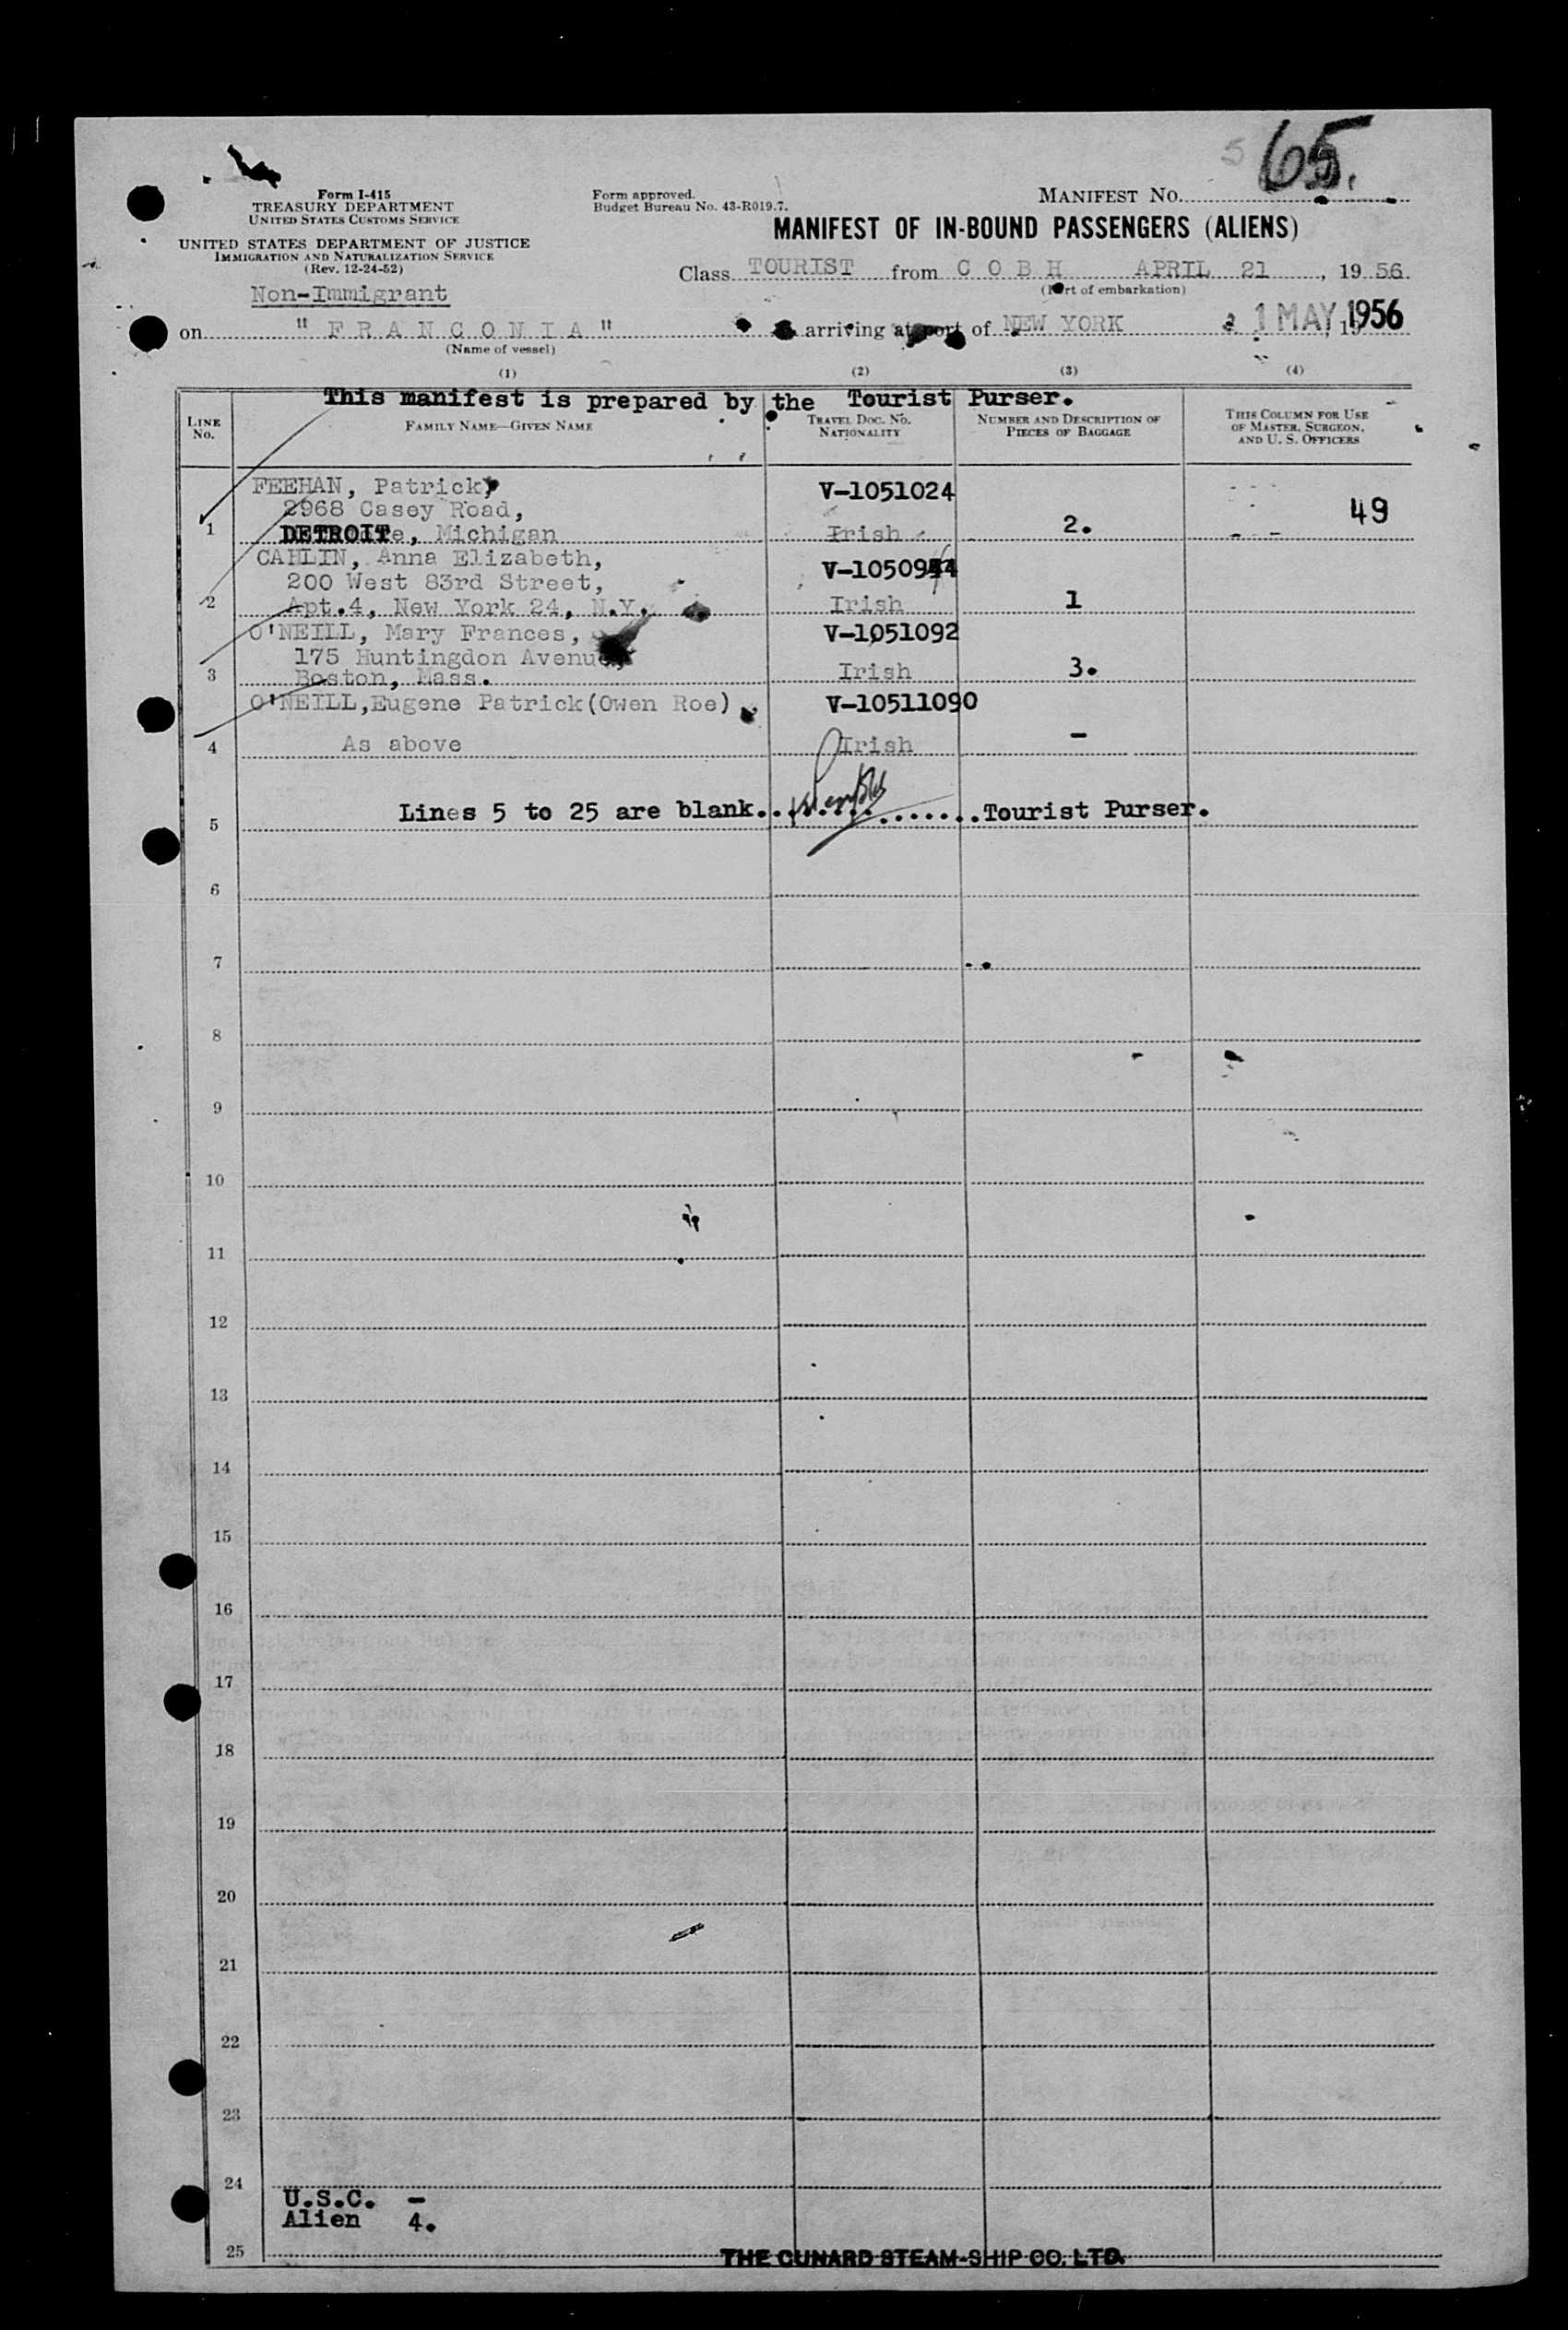 65.
Form I-415
TREASURY DEPARTMENT
UNITED STATES CUSTOMS SERVICE
UNITED STATES DEPARTMENT OF JUSTICE
IMMIGRATION AND NATURALIZATION SERVICE
(Rev. 12-24-52)
Non-Immigrant
Form approved.
Budget Bureau No. 43-R019.7.
MANIFEST NO.
MANIFEST OF IN-BOUND PASSENGERS (ALIENS)
Class TOURIST from C O B H APRIL 21, 19 56
(Port of embarkation)
on " F R A N C O N I A " arriving at port of NEW YORK 1 MAY 1956
(Name of vessel)
(1) (2) (3) (4)
This manifest is prepared by the Tourist Purser.
LINE NO. FAMILY NAME—GIVEN NAME TRAVEL DOC. NO. NATIONALITY NUMBER AND DESCRIPTION OF PIECES OF BAGGAGE THIS COLUMN FOR USE OF MASTER, SURGEON, AND U. S. OFFICERS
FEEHAN, Patrick, V-1051024
2968 Casey Road, 49
1 DETROIT, Michigan Irish 2.
CAHLIN, Anna Elizabeth,
200 West 83rd Street,
2 Apt.4, New York 24, N.Y. Irish 1
O'NEILL, Mary Frances, V-1051092
175 Huntingdon Avenue,
3 Boston, Mass. Irish 3.
O'NEILL,Eugene Patrick(Owen Roe) V-10511090
4 As above Irish -
5 Lines 5 to 25 are blank...............Tourist Purser.
6
7
8
9
10
11
12
13
14
15
16
17
18
19
20
21
22
23
24
U.S.C. -
Alien 4.
25 THE CUNARD STEAM-SHIP CO. LTD.